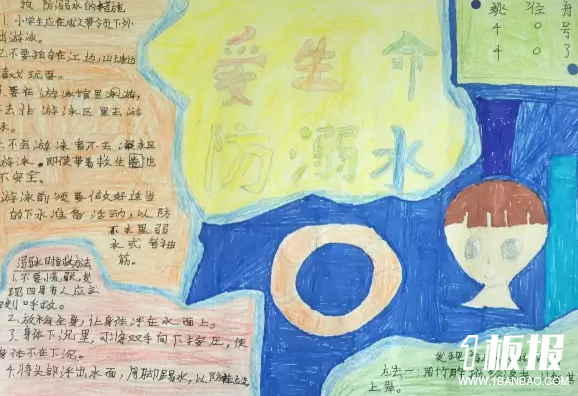 防溺水的措施
1.小学生应在成人带领下外
出游泳。
2.不要独自在江边、山塘边
玩耍。
要在游泳馆里
去非游泳区里去游
泳。
不会游泳者不去
游泳。即使带着救生圈也
不安全。
游泳前须要做好适当
的下水准备活动,以防
水里
水或者抽
筋。
爱生命
防溺水
4 0
4 0 号
4 0 了
溺水时自救方法
1.不要慌张,发
现四周有人应立
刻呼救。
2.放松全身,让身体浮在水面上。
3.身体下沉里,可将双手向下挤压,使
身体不在下沉。
4.将头部浮出水面,用脚踢水,以防
发现
方法一:用竹
上岸。
1板报
WWW.1BANBAO.COM